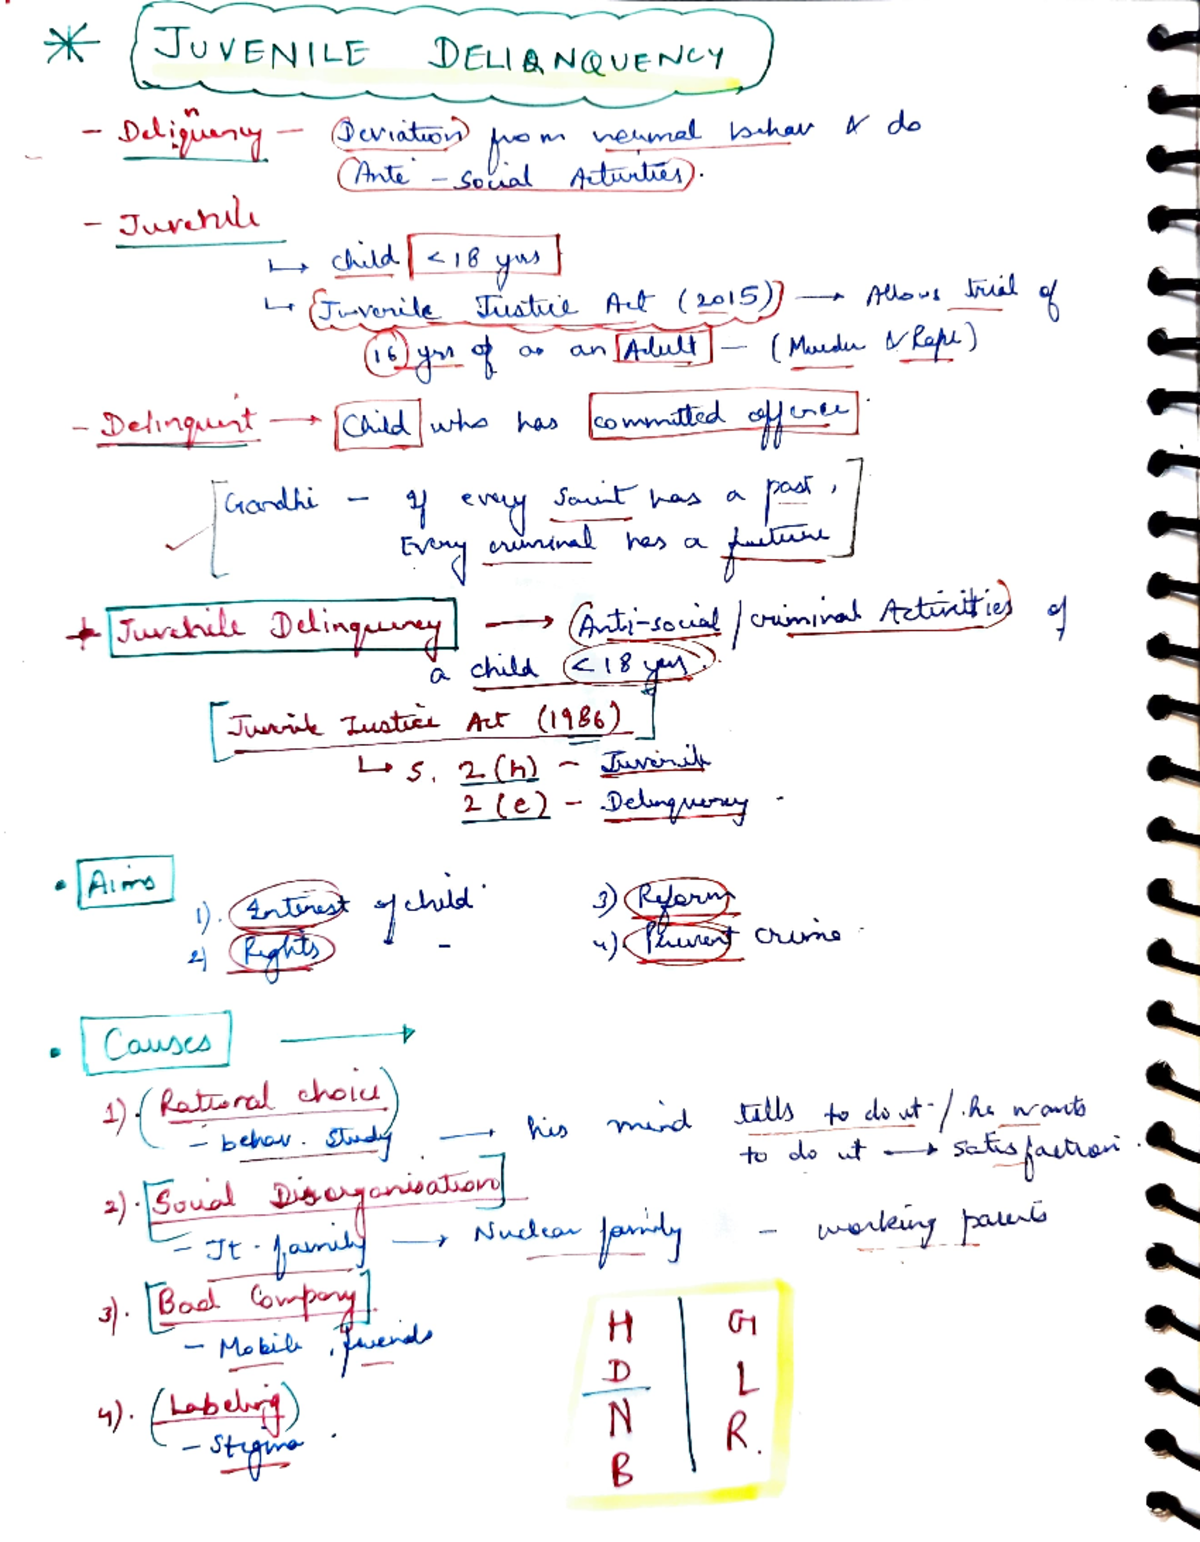 * JUVENILE DELIQNQUENCY
- Deliqnuency - (Deviation) from normal behav & do
(Ante - Social Activities).
- Juvenile
↳ child <18 yrs
↳ (Juvenile Justice Act (2015)) → Allows trial of
16 yrs of as an Adult - (Murder & Rape)
- Delinquent → Child who has committed offence.
[Gandhi - If every Saint has a past,
Every criminal has a future]
+ Juvenile Delinquency → (Anti-social / criminal Activities) of
a child (<18 yrs).
[Juvenile Justice Act (1986)]
↳ S. 2(h) - Juvenile
2(e) - Delinquency
• Aims
1). Interest of child 3) Reform
2) Rights - 4) Prevent crime.
• Causes →
1). (Rational choice)
- behav. study → his mind tells to do it / he wants
to do it → satisfaction.
2). [Social Disorganisation]
- Jt. family → Nuclear family - working parents
3). [Bad Company]
- Mobile, friends
4). (Labeling)
- Stigma.
H G
D L
N R.
B